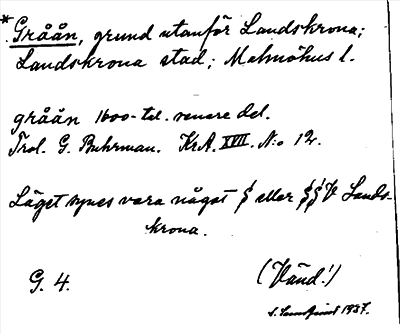 * Gråån, grund utanför Landskrona;
Landskrona stad; Malmöhus l.
gråån 1600-tal. senare del.
Trol. G. Buhrman. KrA. XVIII. N:o 12.
Läget synes vara något S eller SSV Lands-
krona.
G. 4.
(Vänd!)
1937.